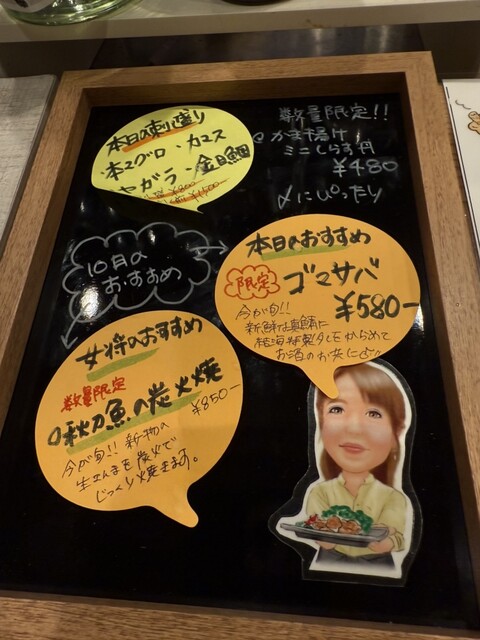 本日の刺し盛り
・本マグロ・カマス
ヤガラ・金目鯛
数量限定!!
かま揚げ
ミニしらす丼
¥480
〆にぴったり
10月の
おすすめ
本日のおすすめ
限定
ゴマサバ
¥580-
今が旬!!
新鮮な真鯛に
特製ダレをからめて
お酒のお供に
女将のおすすめ
数量限定
秋刀魚の炭火焼
¥850-
今が旬!! 新物の
生さんまを炭火で
じっくり焼きます。